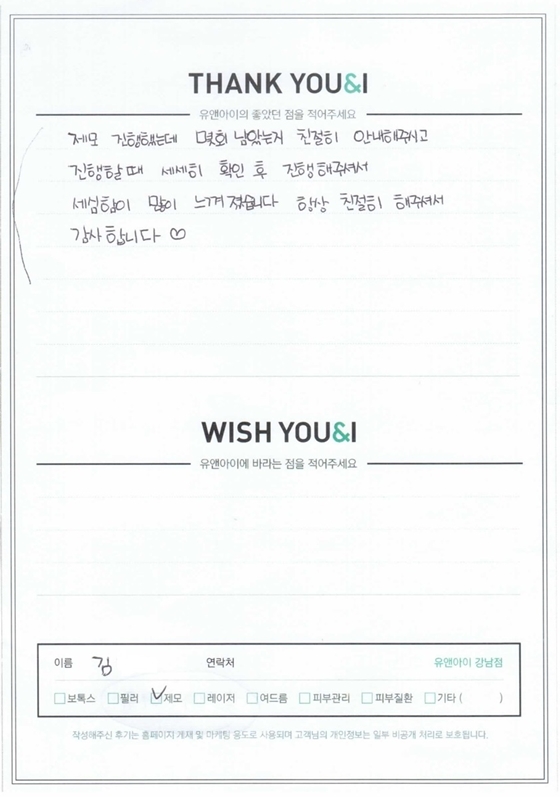 THANK YOU&I
유앤아이의 좋았던 점을 적어주세요
제모 진행했는데 몇회 남았는지 친절히 안내해주시고
진행할때 세세히 확인 후 진행해주셔서
세심함이 많이 느껴졌습니다 항상 친절히 해주셔서
감사합니다 ♡
WISH YOU&I
유앤아이에 바라는 점을 적어주세요
이름 김 연락처 유앤아이 강남점
보톡스 필러 제모 레이저 여드름 피부관리 피부질환 기타 ( )
작성해주신 후기는 홈페이지 게재 및 마케팅 용도로 사용되며 고객님의 개인정보는 일부 비공개 처리로 보호됩니다.